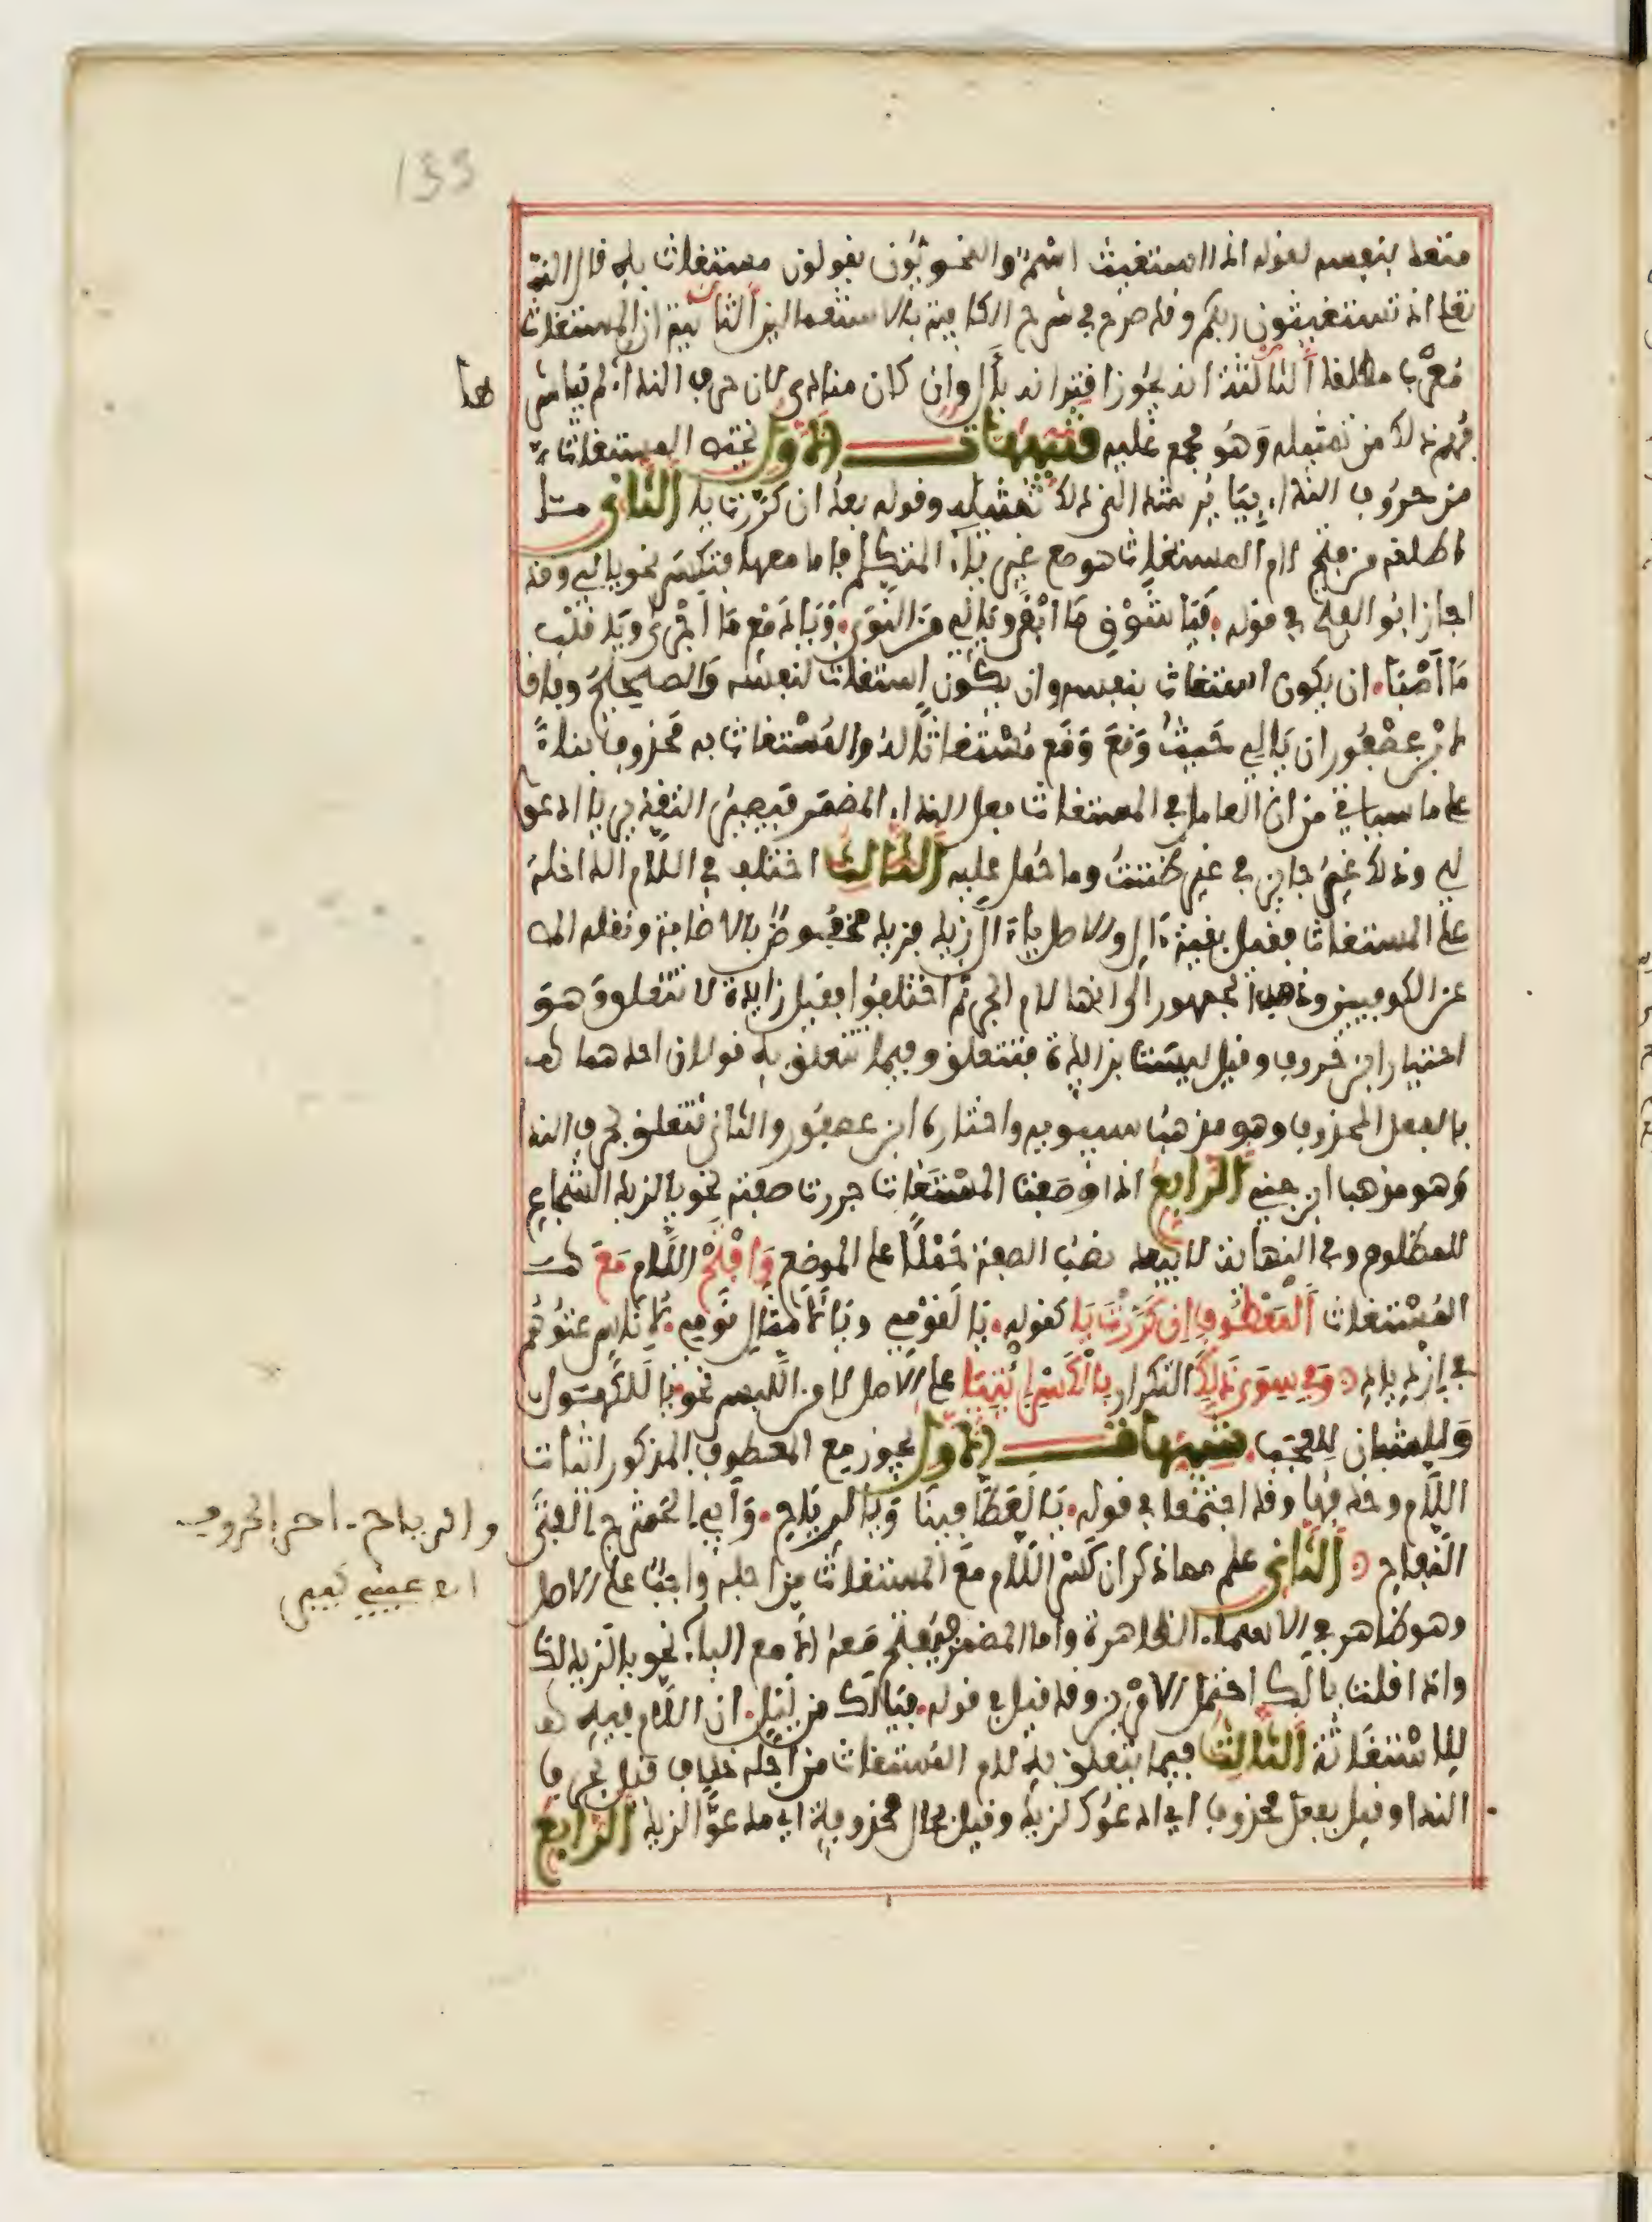 133
متعد بنفسه لقوله اذا استغيث اسم والنحويون يقولون مستغاث به قال الله
تعلى اذ تستغيثون ربكم وقد صرح في شرح الكافية بالاستعمالين الثانية ان المستغاث
معرب مطلقا الثالثة انه يجوز اقترانه بأل وان كان منادى لان حرف النداء لم يباشرها
فهم ذلك من تمثيله وهو مجمع عليه تنبيهات الاول تختص المستغاث
من حروف النداء بيا يرشد الى ذلك تمثيله وقوله بعد ان كررت يا الثاني مثل
ما اطلقه من فتح لام المستغاث هو مع غير ياء المتكلم فاما معها فتكسر نحو يا لي وقد
اجاز ابو الفتح في قوله فيا شوق ما ابقى ويا لي من النوى ويا دمع ما اجرى ويا قلب
ما أصبا ان يكون استغاث بنفسه وان يكون استغاث لنفسه والصحيح وفاقا
لابن عصفور ان يا لي حيث وقع وقع مستغاثا له والمستغاث به محذوف بناءً
على ما سياتي من ان العامل في المستغاث فعل النداء المضمر فيصير التقدير يا ادعو
لي وذلك غير جايز في غير ظننت وما حمل عليه الثالث اختلف في اللام الداخلة
على المستغاث فقيل بقية ءال والاصل ياءال زيد فزيد مخفوض بالاضافة ونقله المص
عن الكوفيين وذهب الجمهور الى انها لام الجر ثم اختلفوا فقيل زايدة لا تتعلق وهو
اختيار ابن خروف وقيل ليست بزايدة فتتعلق وفيما تتعلق به قولان احدهما
بالفعل المحذوف وهو مذهب سيبويه واختاره ابن عصفور والثاني تتعلق بحرف الندا
وهو مذهب ابن جني الرابع اذا وصفت المستغاث جررت صفته نحو يا لزيد الشجاع
للمظلوم وفي النهاية لا يبعد نصب الصفة حملا على الموضع وافتح اللام مع
المستغاث المعطوف ان كررت يا كقوله يا لقومي ويا لامثال قومي لاناس عتوهم
في ازدياد وفي سوى ذلك التكرار بالكسر ائتيا على الاصل لامن اللبس نحو يا للكهول
وللشبان للعجب تنبيهات الاول يجوز مع المعطوف المذكور اثبات
اللام وحذفها وقد اجتمعا في قوله يا لعطافنا ويا لرياح وأبي الحشرج الفتى
النفاح الثاني علم مما ذكر ان كسر اللام مع المستغاث من اجله واجب على الاصل
وهو ظاهر في الاسماء الظاهرة واما المضمر فيفتح معه الا مع الياء نحو يا لزيد لك
واذا قلت يا لك احتمل الامرين وقد قيل في قوله فيا لك من ليل ان اللام فيه
للاستغاثة الثالث فيما يتعلق به لام المستغاث من اجله خلاف قيل بحرف
الندا وقيل بفعل محذوف اي ادعوك لزيد وقيل بحال محذوفة اي مدعوا لزيد الرابع